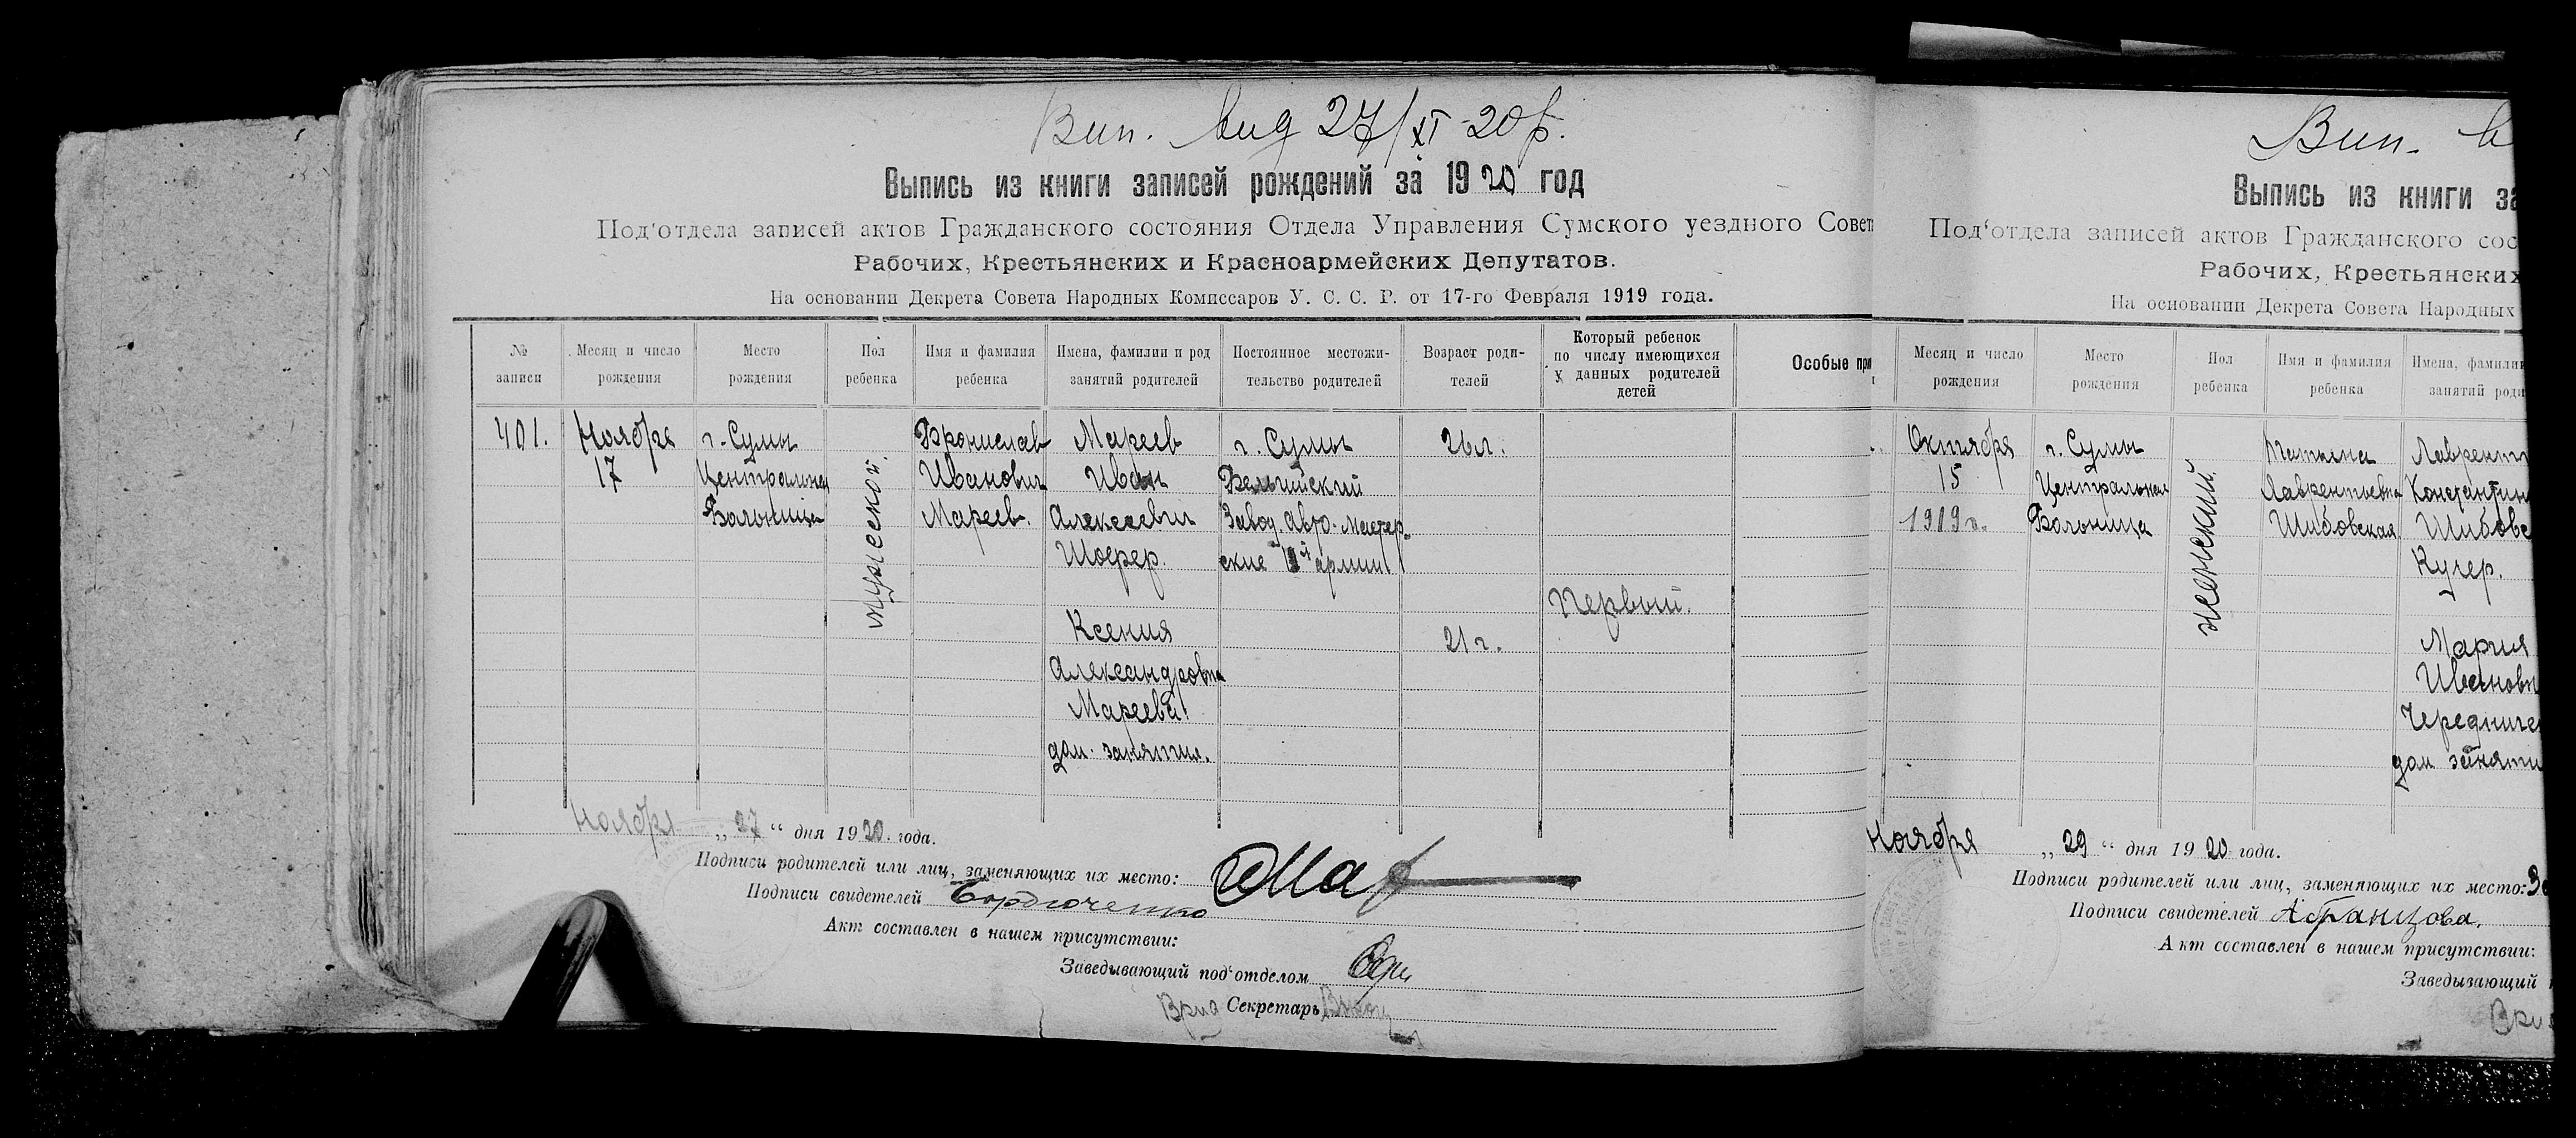 Вип. вид 27/XI-20р.
Выпись из книги записей рождений за 1920 год
Под‘отдела записей актов Гражданского состояния Отдела Управления Сумского уездного Совета
Рабочих, Крестьянских и Красноармейских Депутатов.
На основании Декрета Совета Народных Комиссаров У. С. С. Р. от 17-го Февраля 1919 года.
№ записи
Месяц и число рождения
Место рождения
Пол ребенка
Имя и фамилия ребенка
Имена, фамилии и род занятий родителей
Постоянное местожительство родителей
Возраст родителей
Который ребенок по числу имеющихся у данных родителей детей
Особые при
401.
Ноября
17
г. Сумы
Центральная
Больница
мужеской.
Бронислав
Иванович
Мареев.
Мареев
Иван
Алексеевич
Шофер.
Ксения
Александровна
Мареева.
дом. занятия.
г. Сумы
Бельгийский
Завод. Авто-мастер-
ские армии
26 л.
21 г.
Первый.
Ноября „27“ дня 1920 года.
Подписи родителей или лиц, заменяющих их место:
Подписи свидетелей
Акт составлен в нашем присутствии:
Заведывающий под‘отделом
Врид Секретарь
Вип. в
Выпись из книги за
Под‘отдела записей актов Гражданского сос
Рабочих, Крестьянских
На основании Декрета Совета Народных
Месяц и число рождения
Место рождения
Пол ребенка
Имя и фамилия ребенка
Имена, фамилии
занятий роди
Октября
15
1919 г.
г. Сумы
Центральная
Больница
женский.
Татьяна
Лаврентьевна
Шибовская
Лаврент
Константин
Шибовс
Кучер.
Мария
Ивановн
Чередниче
дом заняти
Ноября „29“ дня 1920 года.
Подписи родителей или лиц, заменяющих их место: За
Подписи свидетелей Абрамцова.
Акт составлен в нашем присутствии:
Заведывающий
Ври